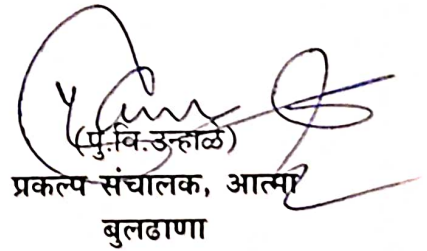 (पु.वि.उन्हाळे)
प्रकल्प संचालक, आत्मा
बुलढाणा